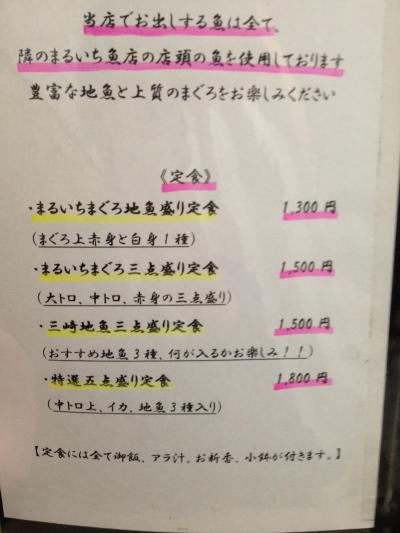 当店でお出しする魚は全て、
隣のまるいち魚店の店頭の魚を使用しております
豊富な地魚と上質のまぐろをお楽しみください
《定食》
・まるいちまぐろ地魚盛り定食 1,300 円
(まぐろ上赤身と白身1種)
・まるいちまぐろ三点盛り定食 1,500 円
(大トロ、中トロ、赤身の三点盛り)
・三崎地魚三点盛り定食 1,500 円
(おすすめ地魚3種、何が入るかお楽しみ!!)
・特選五点盛り定食 1,800 円
(中トロ上、イカ、地魚3種入り)
【定食には全て御飯、アラ汁、お新香、小鉢が付きます。】